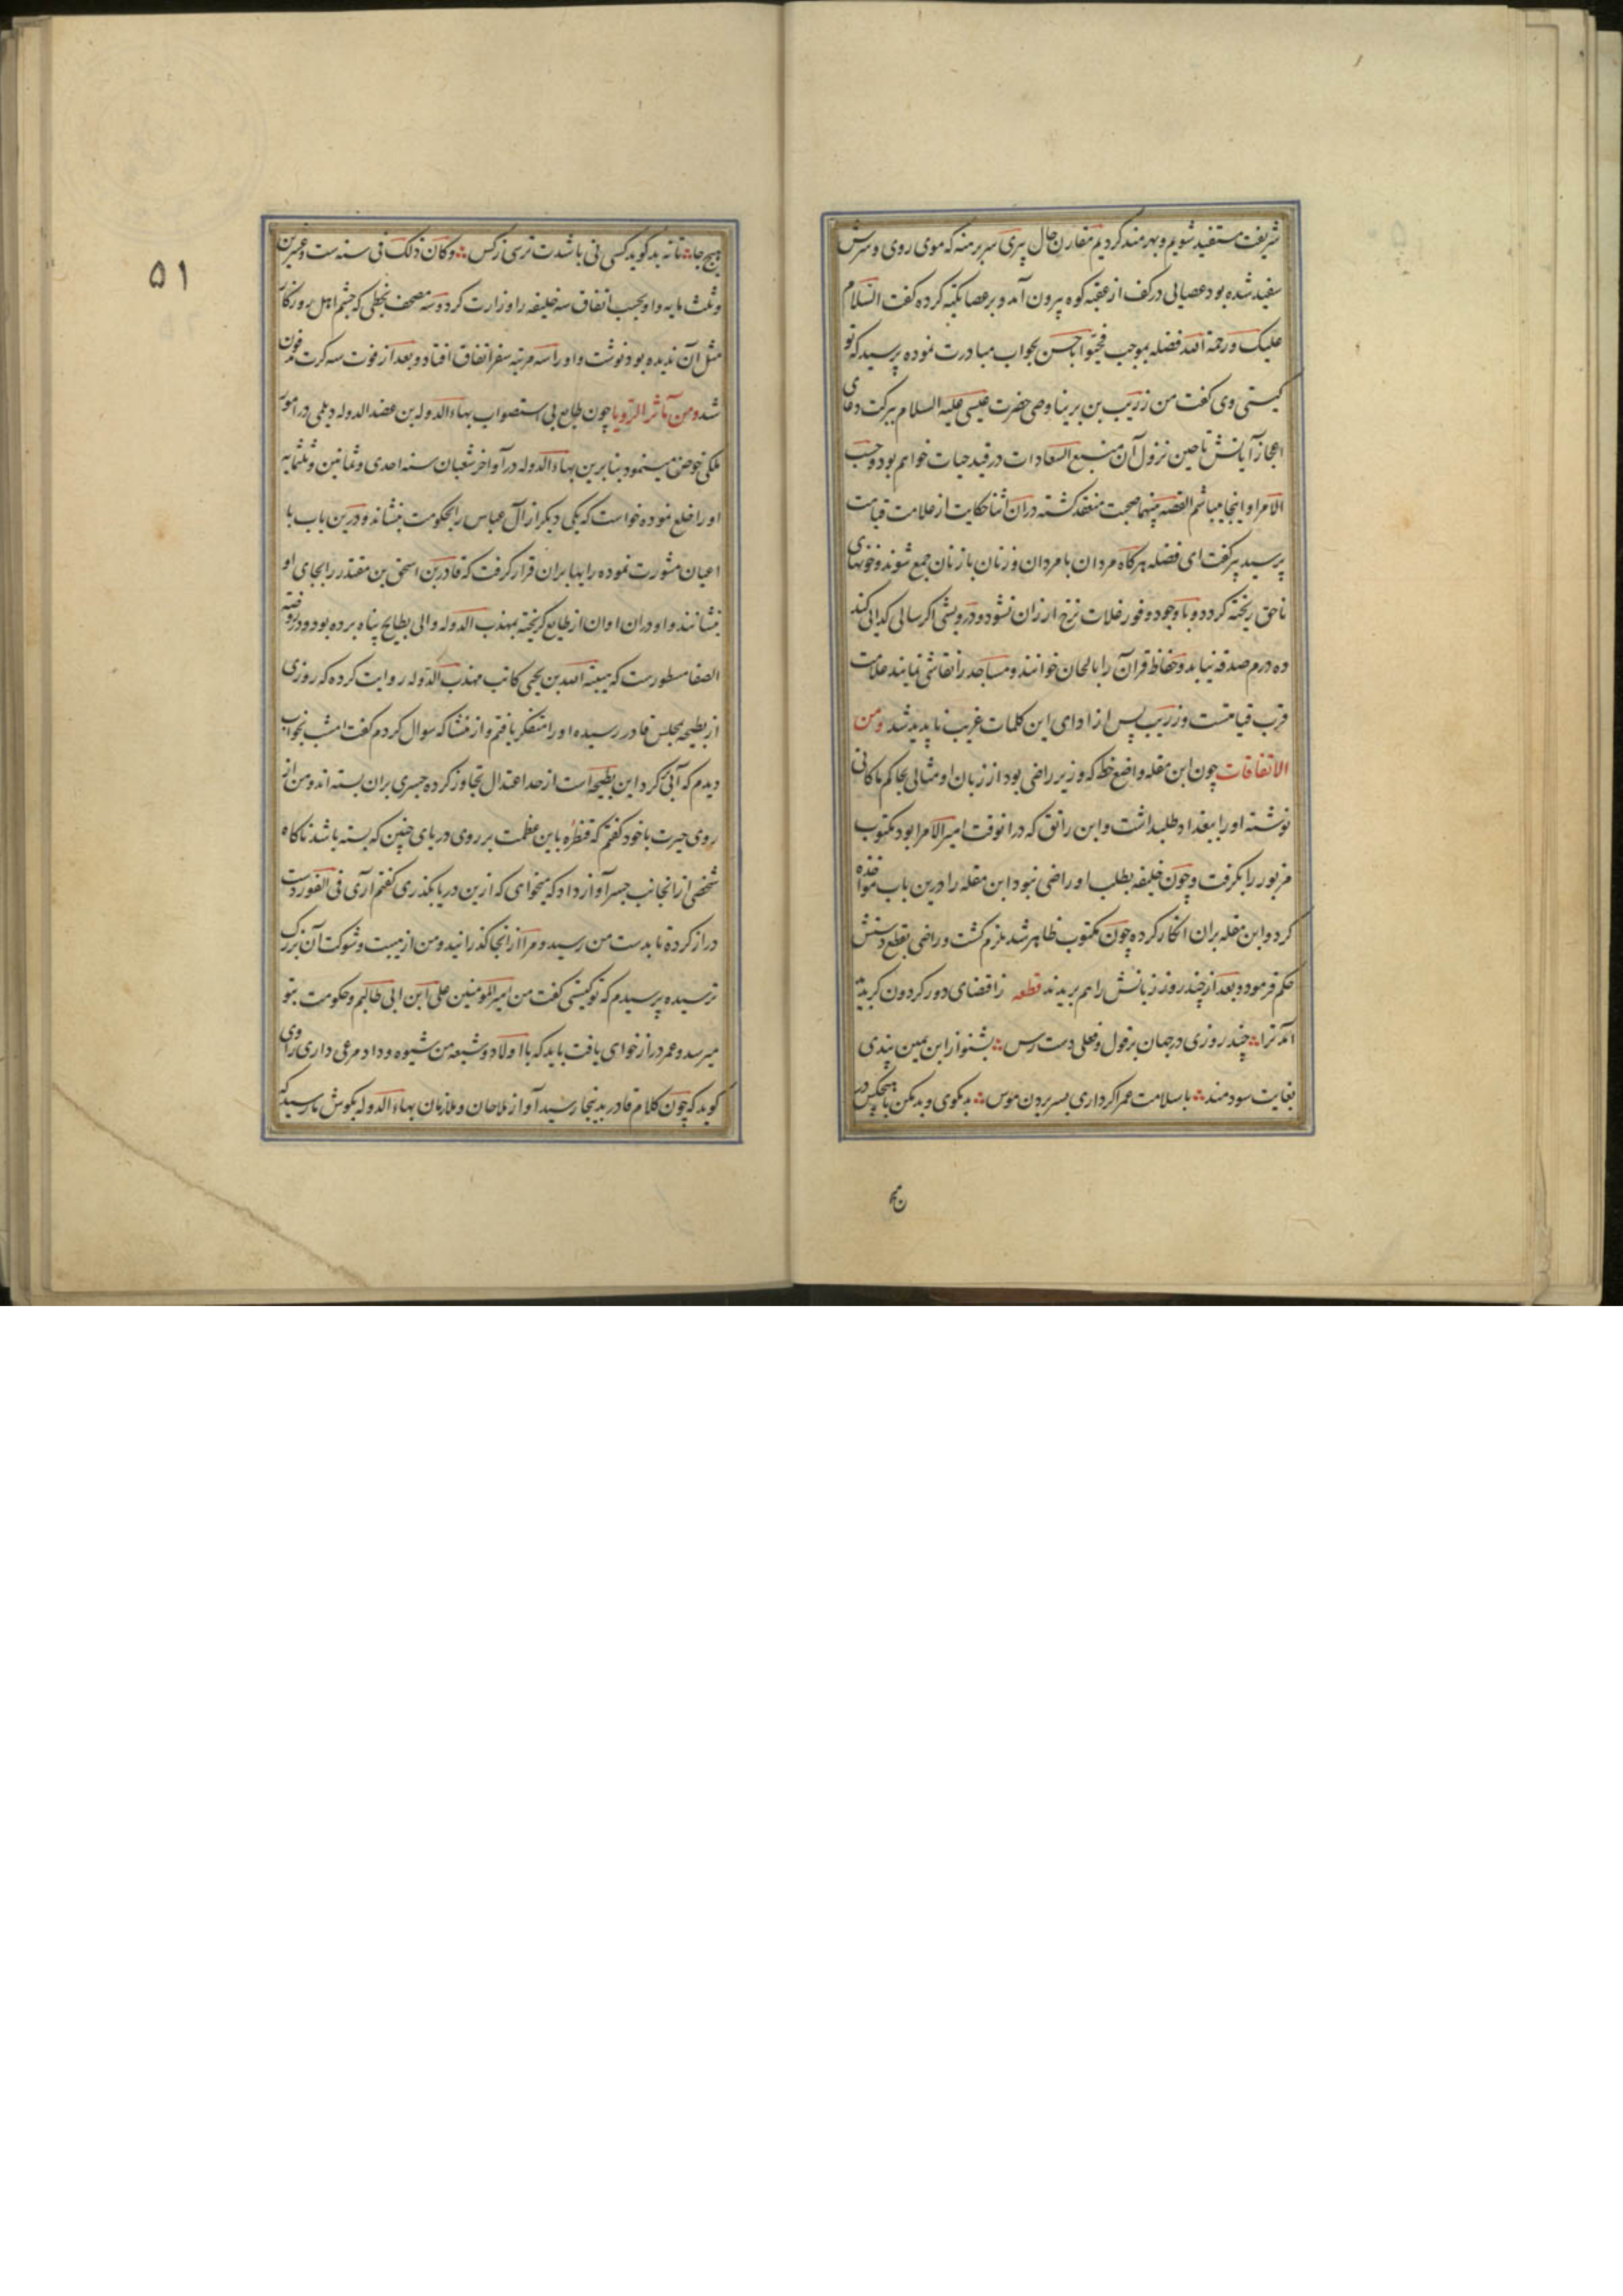 شریفت مستفید شویم و بهره مند کردیم مقارن حال پیری سر برهنه که موی روی و سرش
سفید شده بود عصایی در کف از عقبه کوه بیرون آمد و بر عصا تکیه کرده کفت السّلام
علیک و رحمة الله فضله بموجب فحیّوا باحسن بجواب مبادرت نموده پرسید که تو
کیستی وی کفت من زریب بن برثینا وصی حضرت عیسی علیه السلام ببرکت دعای
اعجاز آیاتش تا حین نزول آن منبع السّعادات در قید حیات خواهم بود و حسب
الامر او اینجا میباشم القصه بینهما صحبت منعقد کشته در آن اثنا حکایت از علامت قیامت
پرسید پیر کفت ای فضله هرکاه مردان با مردان و زنان با زنان جمع شوند و خونهای
ناحق ریخته کردد و با وجود وفور غلات نرخ ارزان نشود و درویشی اکر سالی کدایی کند
ده درم صدقه نیابد و حفاظ قرآن را بالحان خوانند و مساجد را نقاشی نمایند علامت
قرب قیامتست و زریب پس از ادای این کلمات غریب ناپدید شد و من
الاتفاقات چون ابن مقله واضع خط که وزیر راضی بود از زبان او مثالی بحاکم ماکانی
نوشته او را ببغداد طلبداشت و ابن رائق که در انوقت امیر الامرا بود مکتوب
مزبور را بکرفت و چون خلیفه بطلب او راضی نبود ابن مقله را درین باب مواخذه
کرد و ابن مقله بران انکار کرده چون مکتوب ظاهر شد ملزم کشت و راضی بقطع دستش
حکم فرمود و بعد از چند روز زبانش را هم بریدند قطعه ز اقتضای دور کردون کر بود
آنک ترا ∴ چند روزی در جهان بر قول و فعلی دست رس ∴ بشنو از ابن یمین پندی
بغایت سودمند ∴ با سلامت عمر اکر داری بسر بردن هوس ∴ بد مکوی و بد مکن با هیچکس در
هیچ جا ∴ تا نه بد کوید کسی نی باشدت ترسی ز کس ∴ و کان ذلک فی سنه ست و عشرین
و ثلث مایه و او بحسب اتفاق سه خلیفه را وزارت کرد و سه مصحف بخطی که چشم اهل روزکار
مثل آن ندیده بود نوشت و او را سه مرتبه سفر اتفاق افتاد و بعد از فوت سه کرت مدفون
شد و من مآثر الرّویا چون طایع بی استصواب بهاء الدوله بن عضد الدوله دیلمی در امور
ملکی خوض مینمود بنابرین بهاء الدوله در آواخر شعبان سنه احدی و ثمانین و ثلثمایه
او را خلع نموده خواست که یکی دیکر از آل عباس را بحکومت بنشاند و درین باب با
اعیان مشورت نموده رایها بران قرار کرفت که قادر بن اسحق بن مقتدر را بجای او
بنشانند و او در ان اوان از طایع کریخته بمهذب الدوله والی بطایح پناه برده بود و در روضة
الصفا مسطورست که هبة الله بن یحیی کاتب مهذب الدّوله روایت کرده که روزی
از بطیحه بمجلس قادر رسیده او را متفکر یافتم و از منشا که سوال کردم کفت امشب بخواب
دیدم که آبی کرد این بطیحه است از حد اعتدال تجاوز کرده جسری بران بسته اند و من از
روی حیرت با خود کفتم که قنطره باین عظمت بر روی دریای چنین که بسته باشد ناکاه
شخصی از انجانب جسر آواز داد که میخواهی که ازین دریا بکذری کفتم آری فی الفور دست
دراز کرده تا بدست من رسید و مرا از آنجا کذرانید و من از هیبت و شوکت آن بزرک
ترسیده پرسیدم که تو کیستی کفت من امیر المومنین علی ابن ابی طالبم و حکومت بتو
میرسد و عمر دراز خواهی یافت باید که با اولاد و شیعه من شیوه وداد مرعی داری راوی
کوید که چون کلام قادر بدینجا رسید آواز ملاحان و ملازمان بهاء الدوله بکوش ما رسید که
۵۱